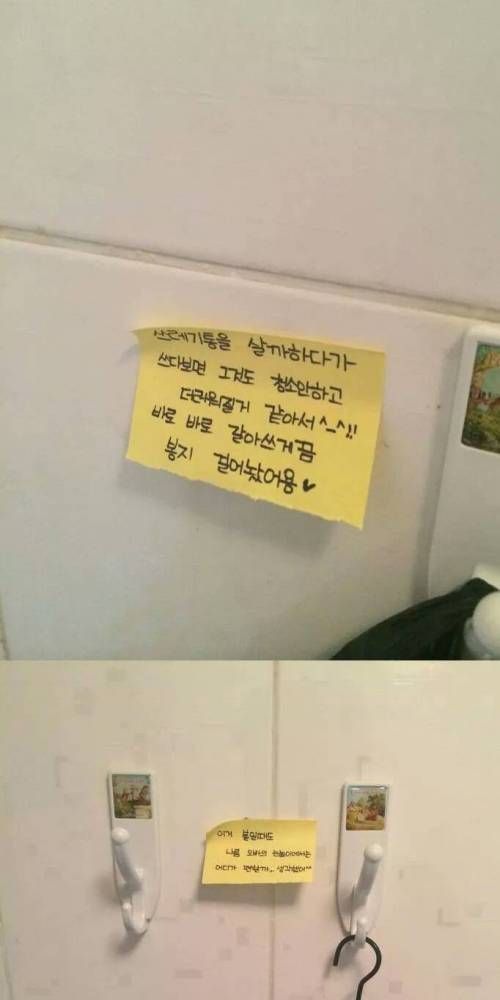 쓰레기통을 살까하다가
쓰다보면 그것도 청소안하고
더러워질거 같아서^_^!!
바로 바로 갈아쓰게끔
봉지 걸어놨어용♥
이거 붙일때도
나름 오빠의 눈높이에서는
어디가 편할까... 생각했어^^